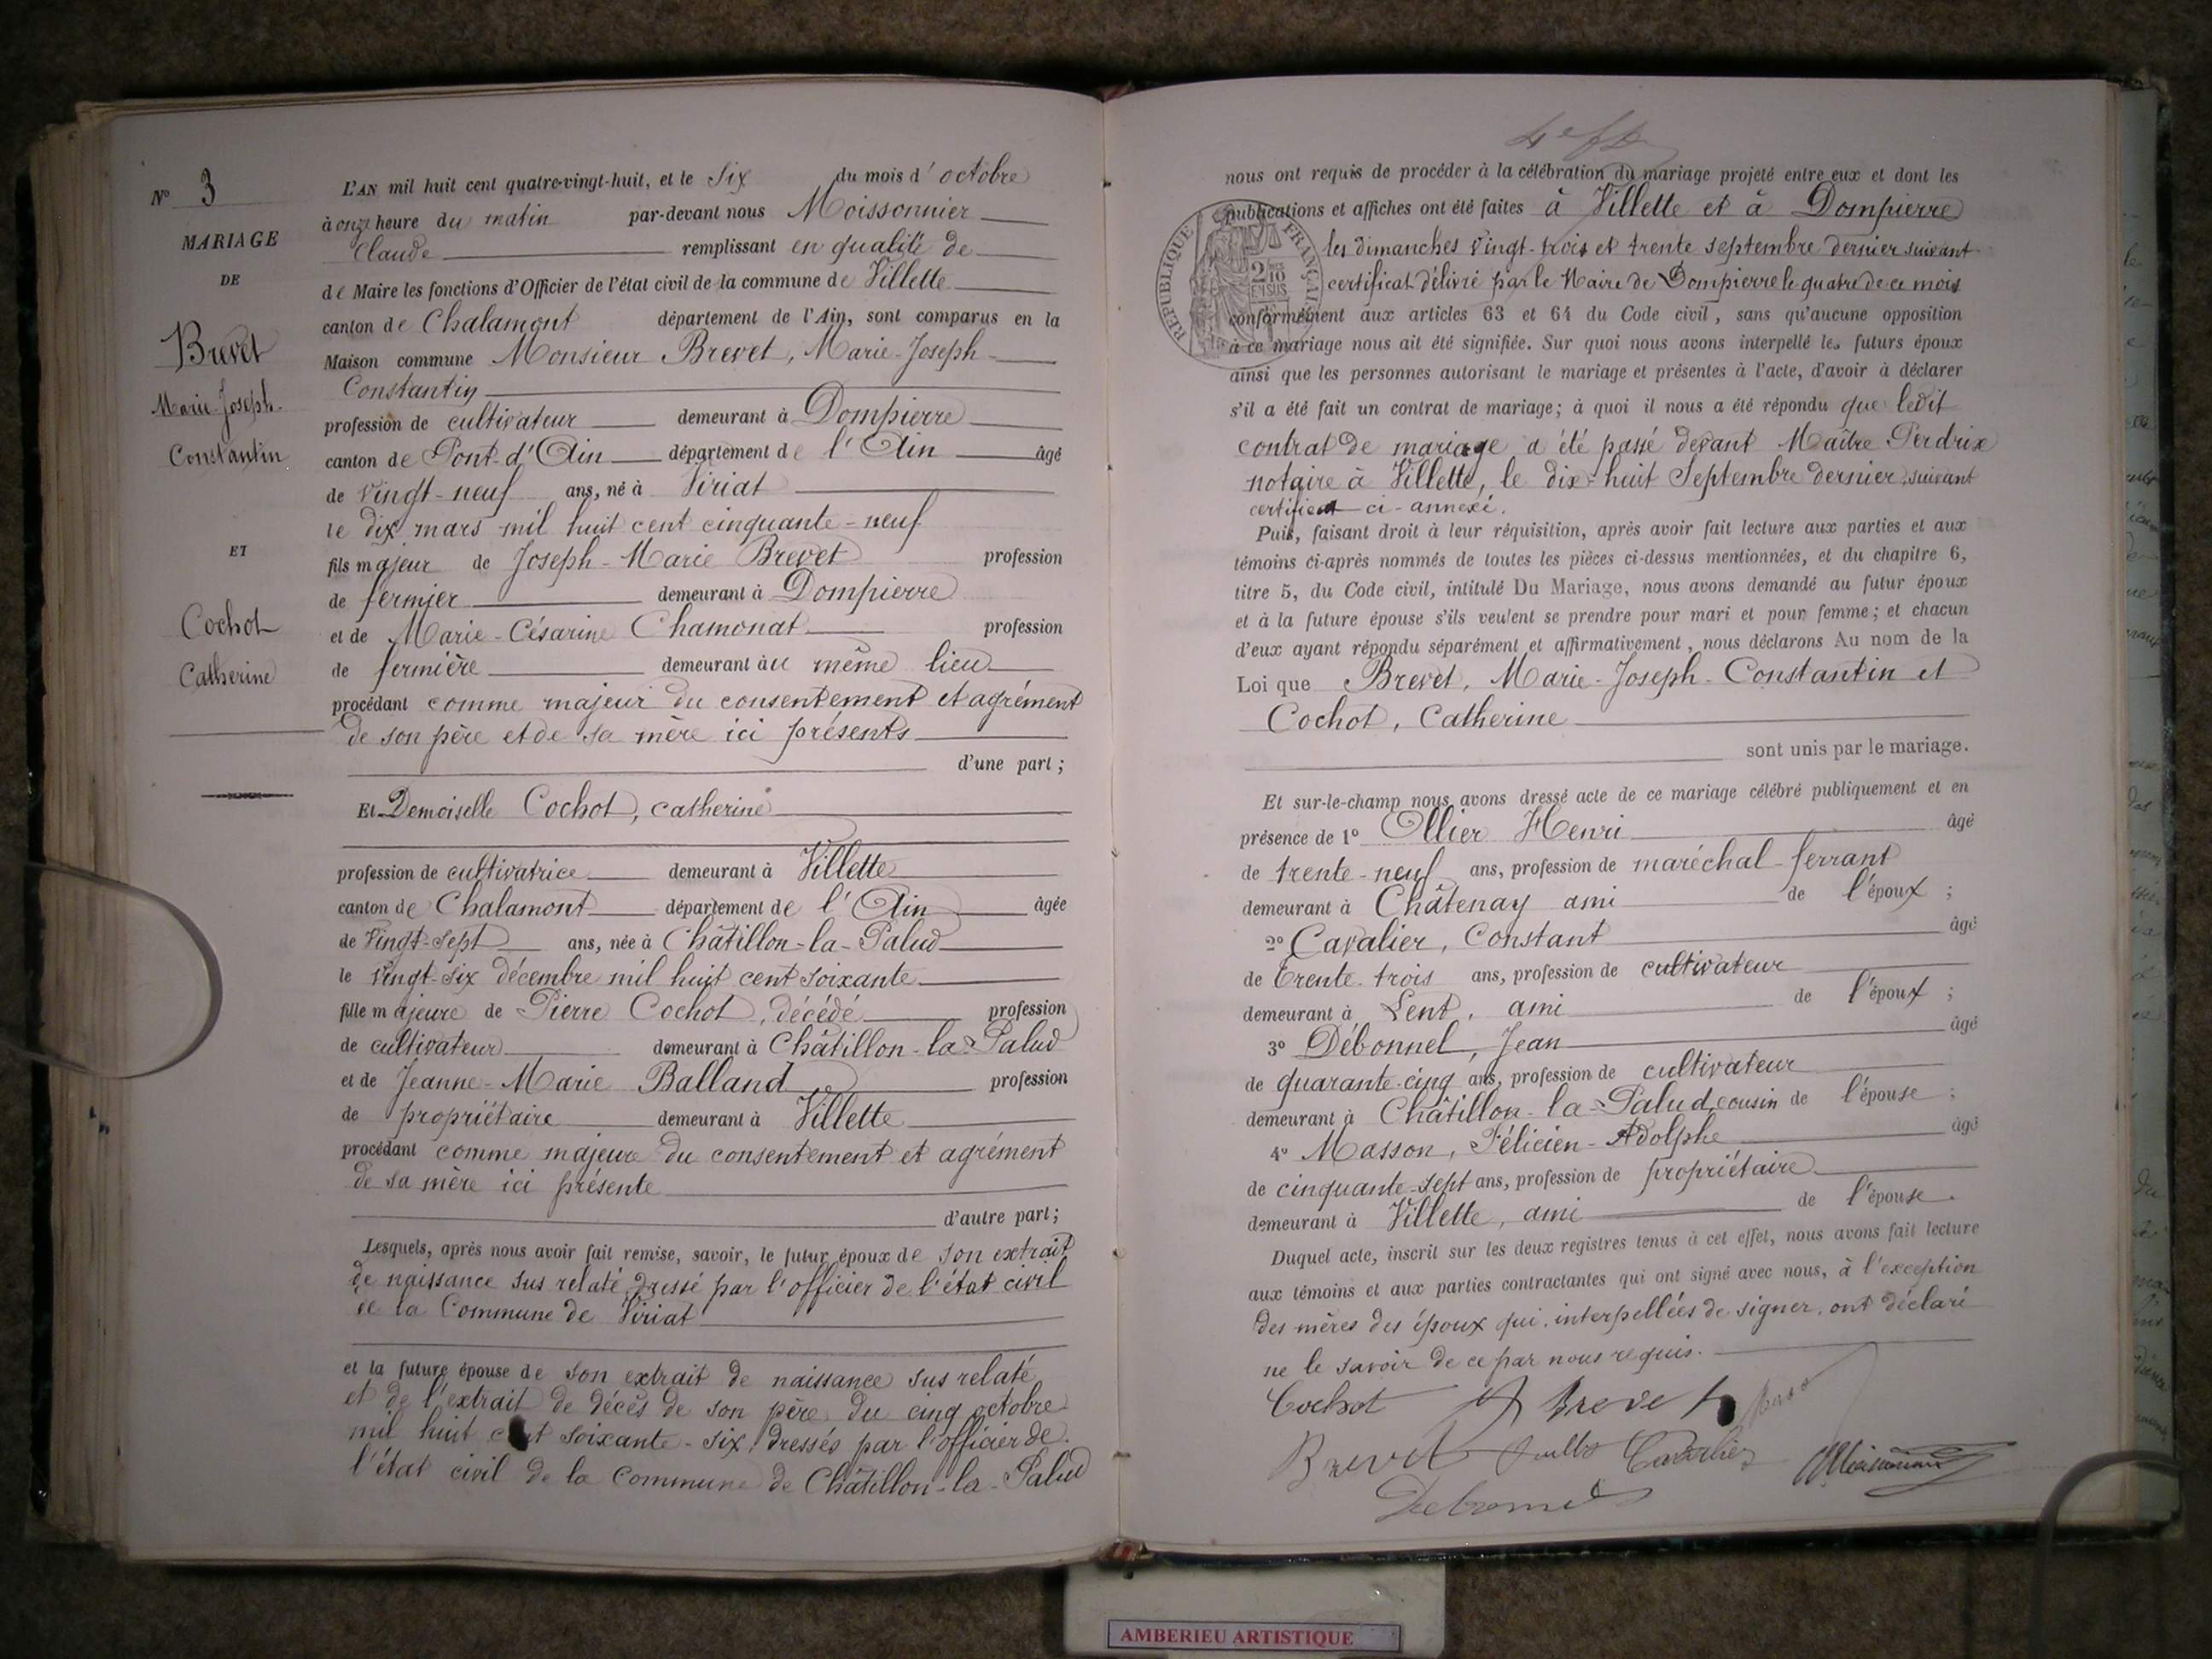 N° 3
MARIAGE
DE
Brevet
Marie-Joseph-
Constantin
ET
Cochot
Catherine
L'AN mil huit cent quatre-vingt-huit, et le six du mois d'octobre
à onze heure du matin par-devant nous Moissonnier
Claude remplissant en qualité de
de Maire les fonctions d'Officier de l'état civil de la commune de Villette
canton de Chalamont département de l'Ain, sont comparus en la
Maison commune Monsieur Brevet, Marie-Joseph-
Constantin
profession de cultivateur demeurant à Dompierre
canton de Pont-d'Ain département de l'Ain âgé
de vingt-neuf ans, né à Viriat
le dix mars mil huit cent cinquante-neuf
fils majeur de Joseph-Marie Brevet profession
de fermier demeurant à Dompierre
et de Marie-Césarine Chamonat profession
de fermière demeurant au même lieu
procédant comme majeur du consentement et agrément
de son père et de sa mère ici présents
d'une part;
Et Demoiselle Cochot, Catherine
profession de cultivatrice demeurant à Villette
canton de Chalamont département de l'Ain âgée
de vingt-sept ans, née à Châtillon-la-Palud
le vingt-six décembre mil huit cent soixante
fille majeure de Pierre Cochot, décédé profession
de cultivateur demeurant à Châtillon-la-Palud
et de Jeanne-Marie Balland profession
de propriétaire demeurant à Villette
procédant comme majeure du consentement et agrément
de sa mère ici présente
d'autre part;
Lesquels, après nous avoir fait remise, savoir, le futur époux de son extrait
de naissance sus relaté dressé par l'officier de l'état civil
de la Commune de Viriat
et la future épouse de son extrait de naissance sus relaté
et de l'extrait de décès de son père du cinq octobre
mil huit cent soixante-six, dressés par l'officier de
l'état civil de la Commune de Châtillon-la-Palud
nous ont requis de procéder à la célébration du mariage projeté entre eux et dont les
publications et affiches ont été faites à Villette et à Dompierre
les dimanches vingt-trois et trente septembre dernier suivant
certificat délivré par le Maire de Dompierre le quatre de ce mois
conformément aux articles 63 et 64 du Code civil, sans qu'aucune opposition
à ce mariage nous ait été signifiée. Sur quoi nous avons interpellé les futurs époux
ainsi que les personnes autorisant le mariage et présentes à l'acte, d'avoir à déclarer
s'il a été fait un contrat de mariage; à quoi il nous a été répondu que ledit
contrat de mariage a été passé devant Maître Perdrix
notaire à Villette, le dix-huit Septembre dernier, suivant
certificat ci-annexé.
Puis, faisant droit à leur réquisition, après avoir fait lecture aux parties et aux
témoins ci-après nommés de toutes les pièces ci-dessus mentionnées, et du chapitre 6,
titre 5, du Code civil, intitulé Du Mariage, nous avons demandé au futur époux
et à la future épouse s'ils veulent se prendre pour mari et pour femme; et chacun
d'eux ayant répondu séparément et affirmativement, nous déclarons Au nom de la
Loi que Brevet, Marie-Joseph-Constantin et
Cochot, Catherine
sont unis par le mariage.
Et sur-le-champ nous avons dressé acte de ce mariage célébré publiquement et en
présence de 1° Ollier Henri âgé
de trente-neuf ans, profession de maréchal-ferrant
demeurant à Châtenay ami de l'époux;
2° Cavalier, Constant âgé
de trente-trois ans, profession de cultivateur
demeurant à Lent, ami de l'époux;
3° Débonnel, Jean âgé
de quarante-cinq ans, profession de cultivateur
demeurant à Châtillon-la-Palud, cousin de l'épouse;
4° Masson, Félicien-Adolphe âgé
de cinquante-sept ans, profession de propriétaire
demeurant à Villette, ami de l'épouse.
Duquel acte, inscrit sur les deux registres tenus à cet effet, nous avons fait lecture
aux témoins et aux parties contractantes qui ont signé avec nous, à l'exception
des mères des époux qui, interpellées de signer, ont déclaré
ne le savoir de ce par nous requis.
Cochot Brevet
Brevet Cavalier
REPUBLIQUE FRANÇAISE
AMBERIEU ARTISTIQUE